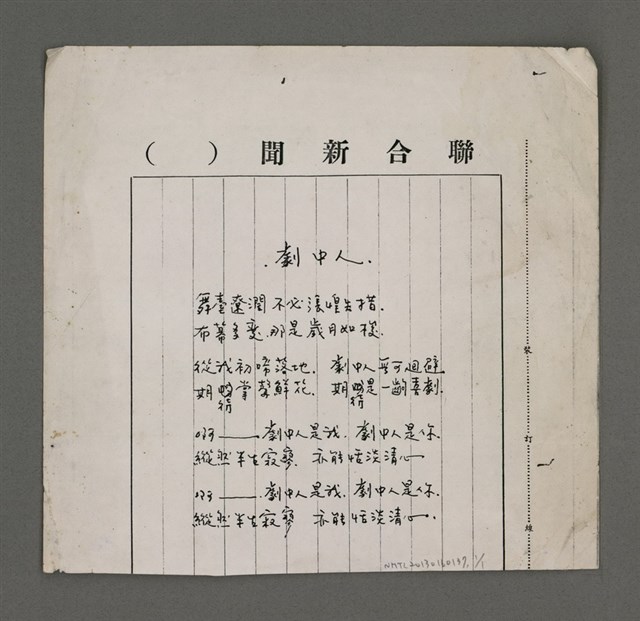 聯合新聞（　）
．劇中人．
舞臺遼濶 不必漲惶失措．
布幕多變．那是歲月如梭．
從我初啼落地．劇中人無可迴避
期待掌聲鮮花．期待是一齣喜劇．
啊——劇中人是我．劇中人是你．
縱然半生寂寥．亦能恬淡清心
啊——．劇中人是我．劇中人是你．
縱然半生寂寥 亦能恬淡清心．
裝
訂
線
NMTL20130160137, 1/1